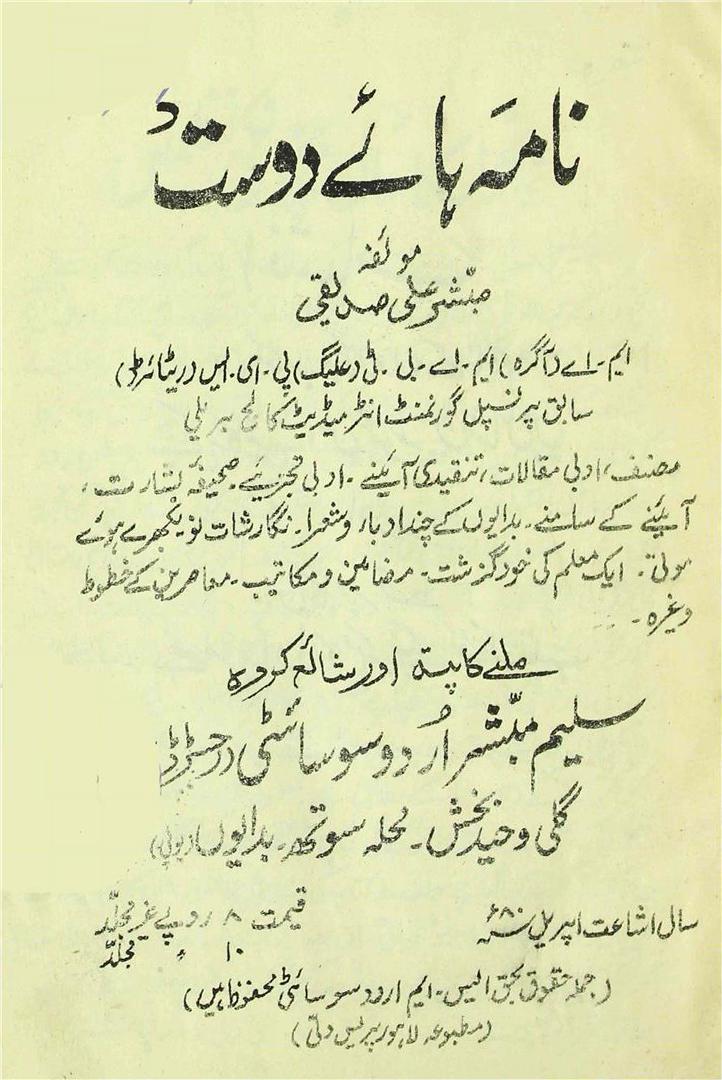 نامہ ہائے دوست
مولفہ
مبشر علی صدیقی
ایم۔اے (آگرہ) ایم۔اے۔بی۔ٹی (علیگ) پی۔ای۔ایس (ریٹائرڈ)
سابق پرنسپل گورنمنٹ انٹرمیڈیٹ کالج بریلی
مصنف، ادبی مقالات، تنقیدی آئینے۔ ادبی تجزیے۔ صحیفۂ بشارت،
آئینے کے سامنے۔ بدایوں کے چند ادباء و شعرا۔ نگارشات نو بکھرے ہوئے
موتی۔ ایک معلم کی خودگزشت۔ مضامین و مکاتیب۔ معاصرین کے خطوط
وغیرہ۔
ملنے کا پتہ اور شائع کردہ
سلیم مبشر اُردو سوسائٹی (رجسٹرڈ)
گلی وحید بخش۔ محلہ سوتھہ۔ بدایوں (یوپی)
سال اشاعت اپریل ۸۰ء
قیمت ۸ روپے غیر مجلّد
۱۰ ؍ مجلّد
(جملہ حقوق بحق ایس۔ایم اردو سوسائٹی محفوظ ہیں)
(مطبوعہ لاہور پریس دلّی)